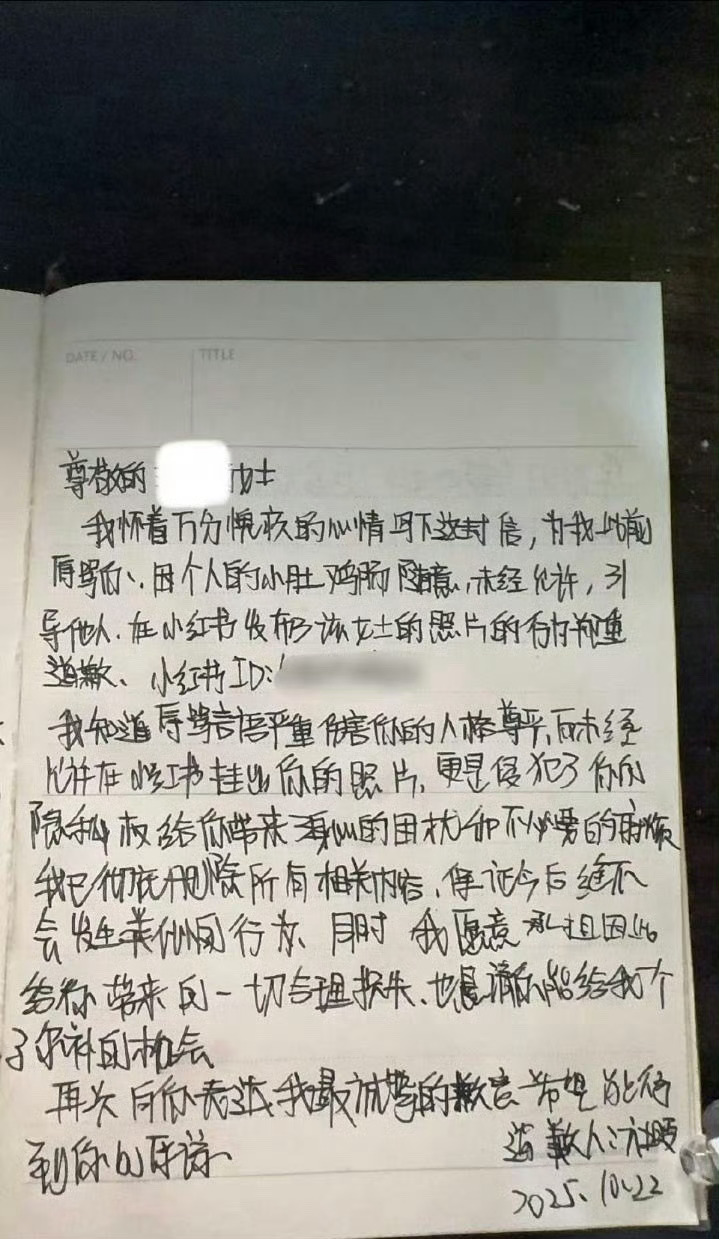 DATE / NO. TITLE
尊敬的 女士
我怀着万分愧疚的心情写下这封信,为我此前
辱骂你、因个人的小肚鸡肠随意,未经允许,引
导他人.在小红书发布了该女士的照片的行为郑重
道歉、小红书ID:
我知道辱骂言语严重伤害你的人格尊严,而未经
允许在小红书挂出你的照片,更是侵犯了你的
隐私权给你带来身心的困扰和不必要的麻烦
我已彻底删除所有相关内容,保证今后绝不
会发生类似的行为.同时 我愿意承担因此
给你带来的一切合理损失.也恳请你能给我个
弥补的机会
再次向你表达我最诚挚的歉意 希望能得
到你的原谅、
道歉人:
2025.10.22